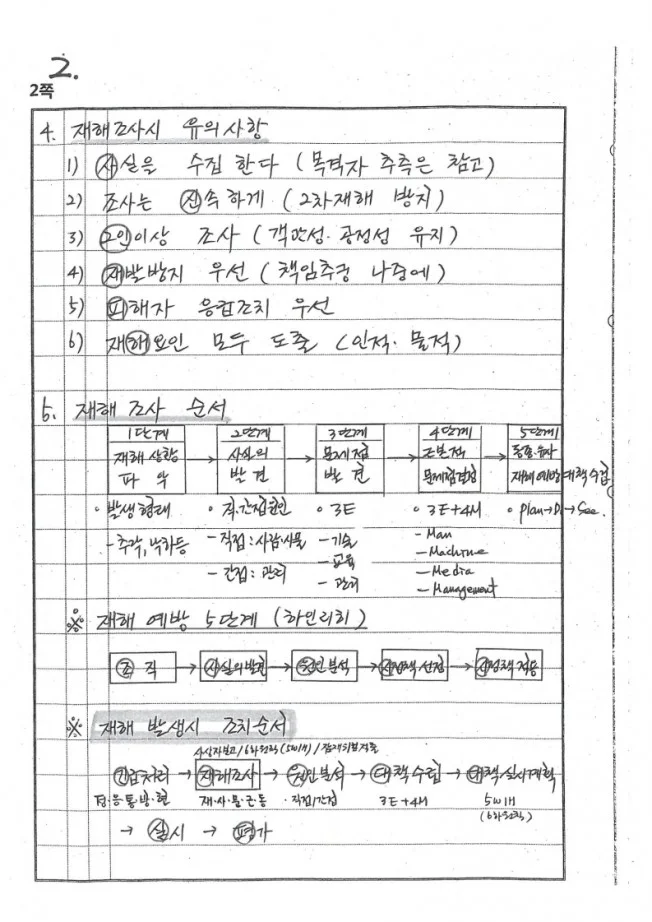 2.
2쪽
4. 재해조사시 유의사항
1) 사실을 수집 한다 (목격자 추측은 참고)
2) 조사는 신속하게 (2차재해 방지)
3) 2인이상 조사 (객관성·공정성 유지)
4) 재발방지 우선 (책임추궁 나중에)
5) 피해자 응급조치 우선
6) 재해요인 모두 도출 (인적·물적)
5. 재해 조사 순서
1단계 2단계 3단계 4단계 5단계
재해 상황 → 사실의 → 문제점 → 근본적 → 동종·유사
파악 발견 발견 문제점결정 재해예방 대책수립
• 발생형태 • 직·간접원인 • 3E • 3E+4M • Plan→D→See.
- 추락, 낙하등 - 직접 : 사람·사물 - 기술 - Man
- 간접 : 관리 - 교육 - Machine
- 관리 - Media
- Management
※ 재해 예방 5단계 (하인리히)
조직 → 사실의발견 → 원인분석 → 시정책선정 → 시정책적용
※ 재해 발생시 조치순서
/6하원칙(5W1H)/잠재위험적출
긴급처리 → 재해조사 → 원인분석 → 대책수립 → 대책실시계획
피·응·통·방·현 재·사·물·관·등 직접/간접 3E+4M 5W1H
(6하원칙)
→ 실시 → 평가